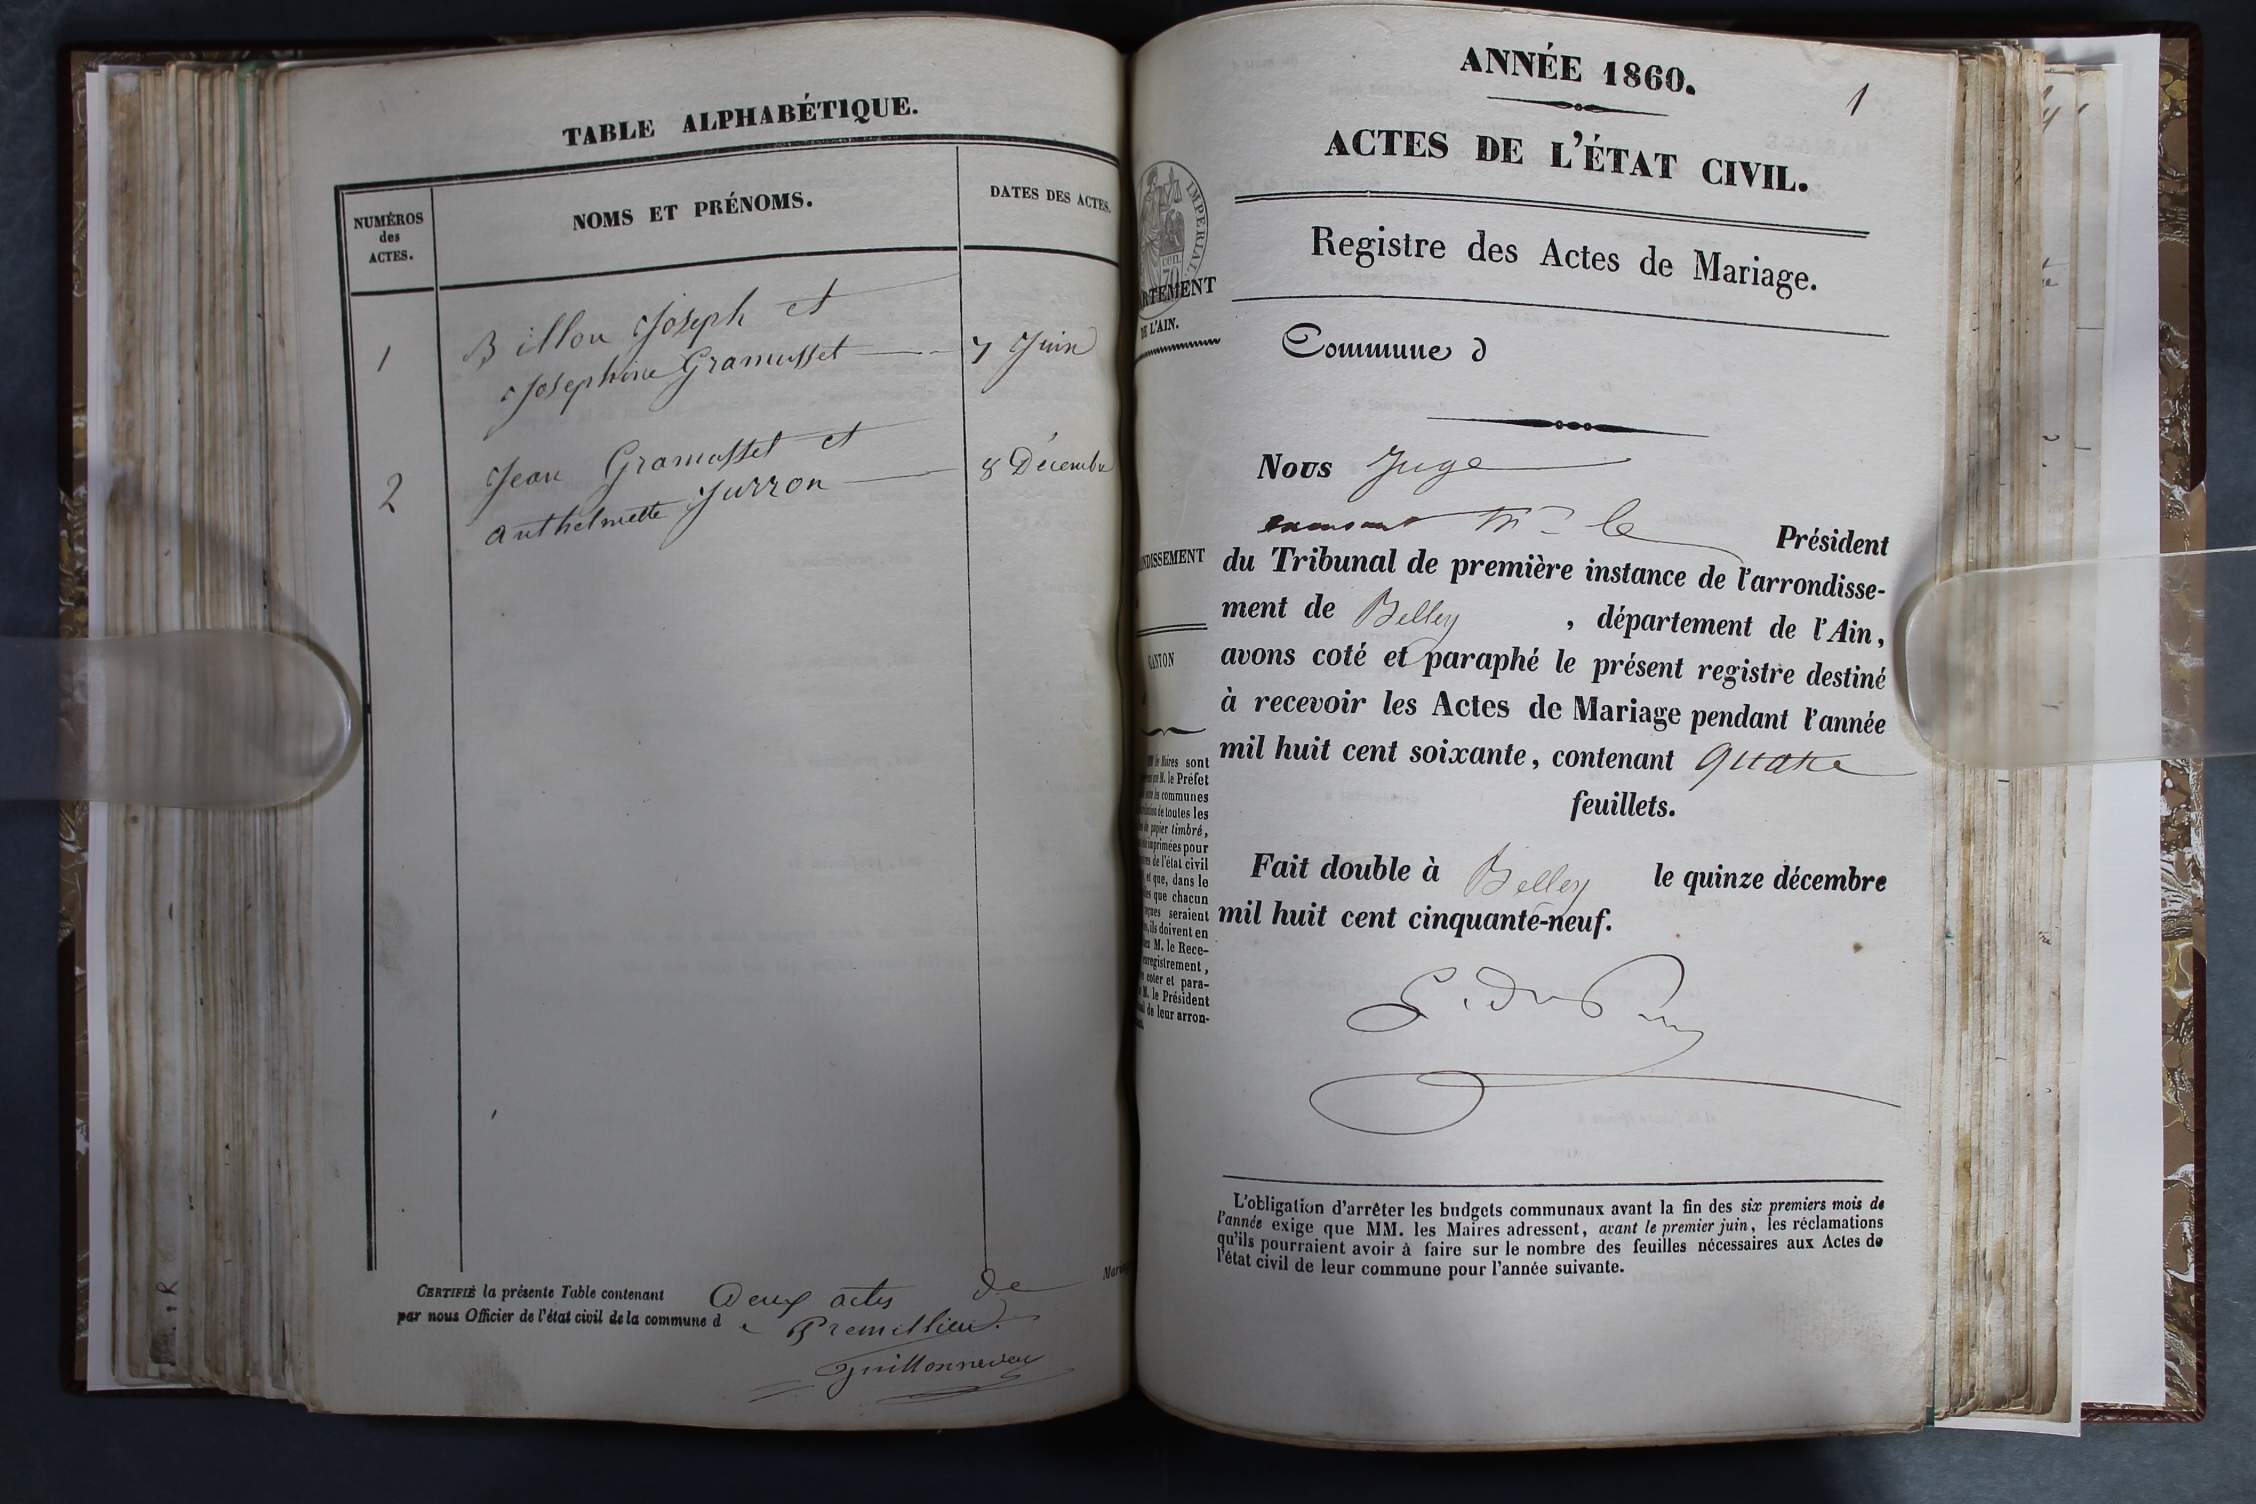 TABLE ALPHABÉTIQUE.
NUMÉROS
des
ACTES.
NOMS ET PRÉNOMS.
DATES DES ACTES.
1
Billon Joseph et
Josephine Gramusset
7 Juin
2
Jean Gramusset et
anthelmette Jurron
8 Décembre
CERTIFIÉ la présente Table contenant Deux actes de
par nous Officier de l'état civil de la commune de Premillieu.
Guillonneveu
1
ANNÉE 1860.
ACTES DE L'ÉTAT CIVIL.
Registre des Actes de Mariage.
IMPERIAL
70
ARTEMENT
DE L'AIN.
Commune d
Nous Juge
Mr le Président
du Tribunal de première instance de l'arrondisse-
ment de Belley , département de l'Ain,
avons coté et paraphé le présent registre destiné
à recevoir les Actes de Mariage pendant l'année
mil huit cent soixante, contenant quatre
feuillets.
Fait double à Belley le quinze décembre
mil huit cent cinquante-neuf.
NDISSEMENT
CANTON
Maires sont
M. le Préfet
communes
de toutes les
papier timbré,
imprimées pour
de l'état civil
et que, dans le
que chacun
seraient
ils doivent en
M. le Rece-
enregistrement,
coter et para-
M. le Président
de leur arron-
L'obligation d'arrêter les budgets communaux avant la fin des six premiers mois de
l'année exige que MM. les Maires adressent, avant le premier juin, les réclamations
qu'ils pourraient avoir à faire sur le nombre des feuilles nécessaires aux Actes de
l'état civil de leur commune pour l'année suivante.